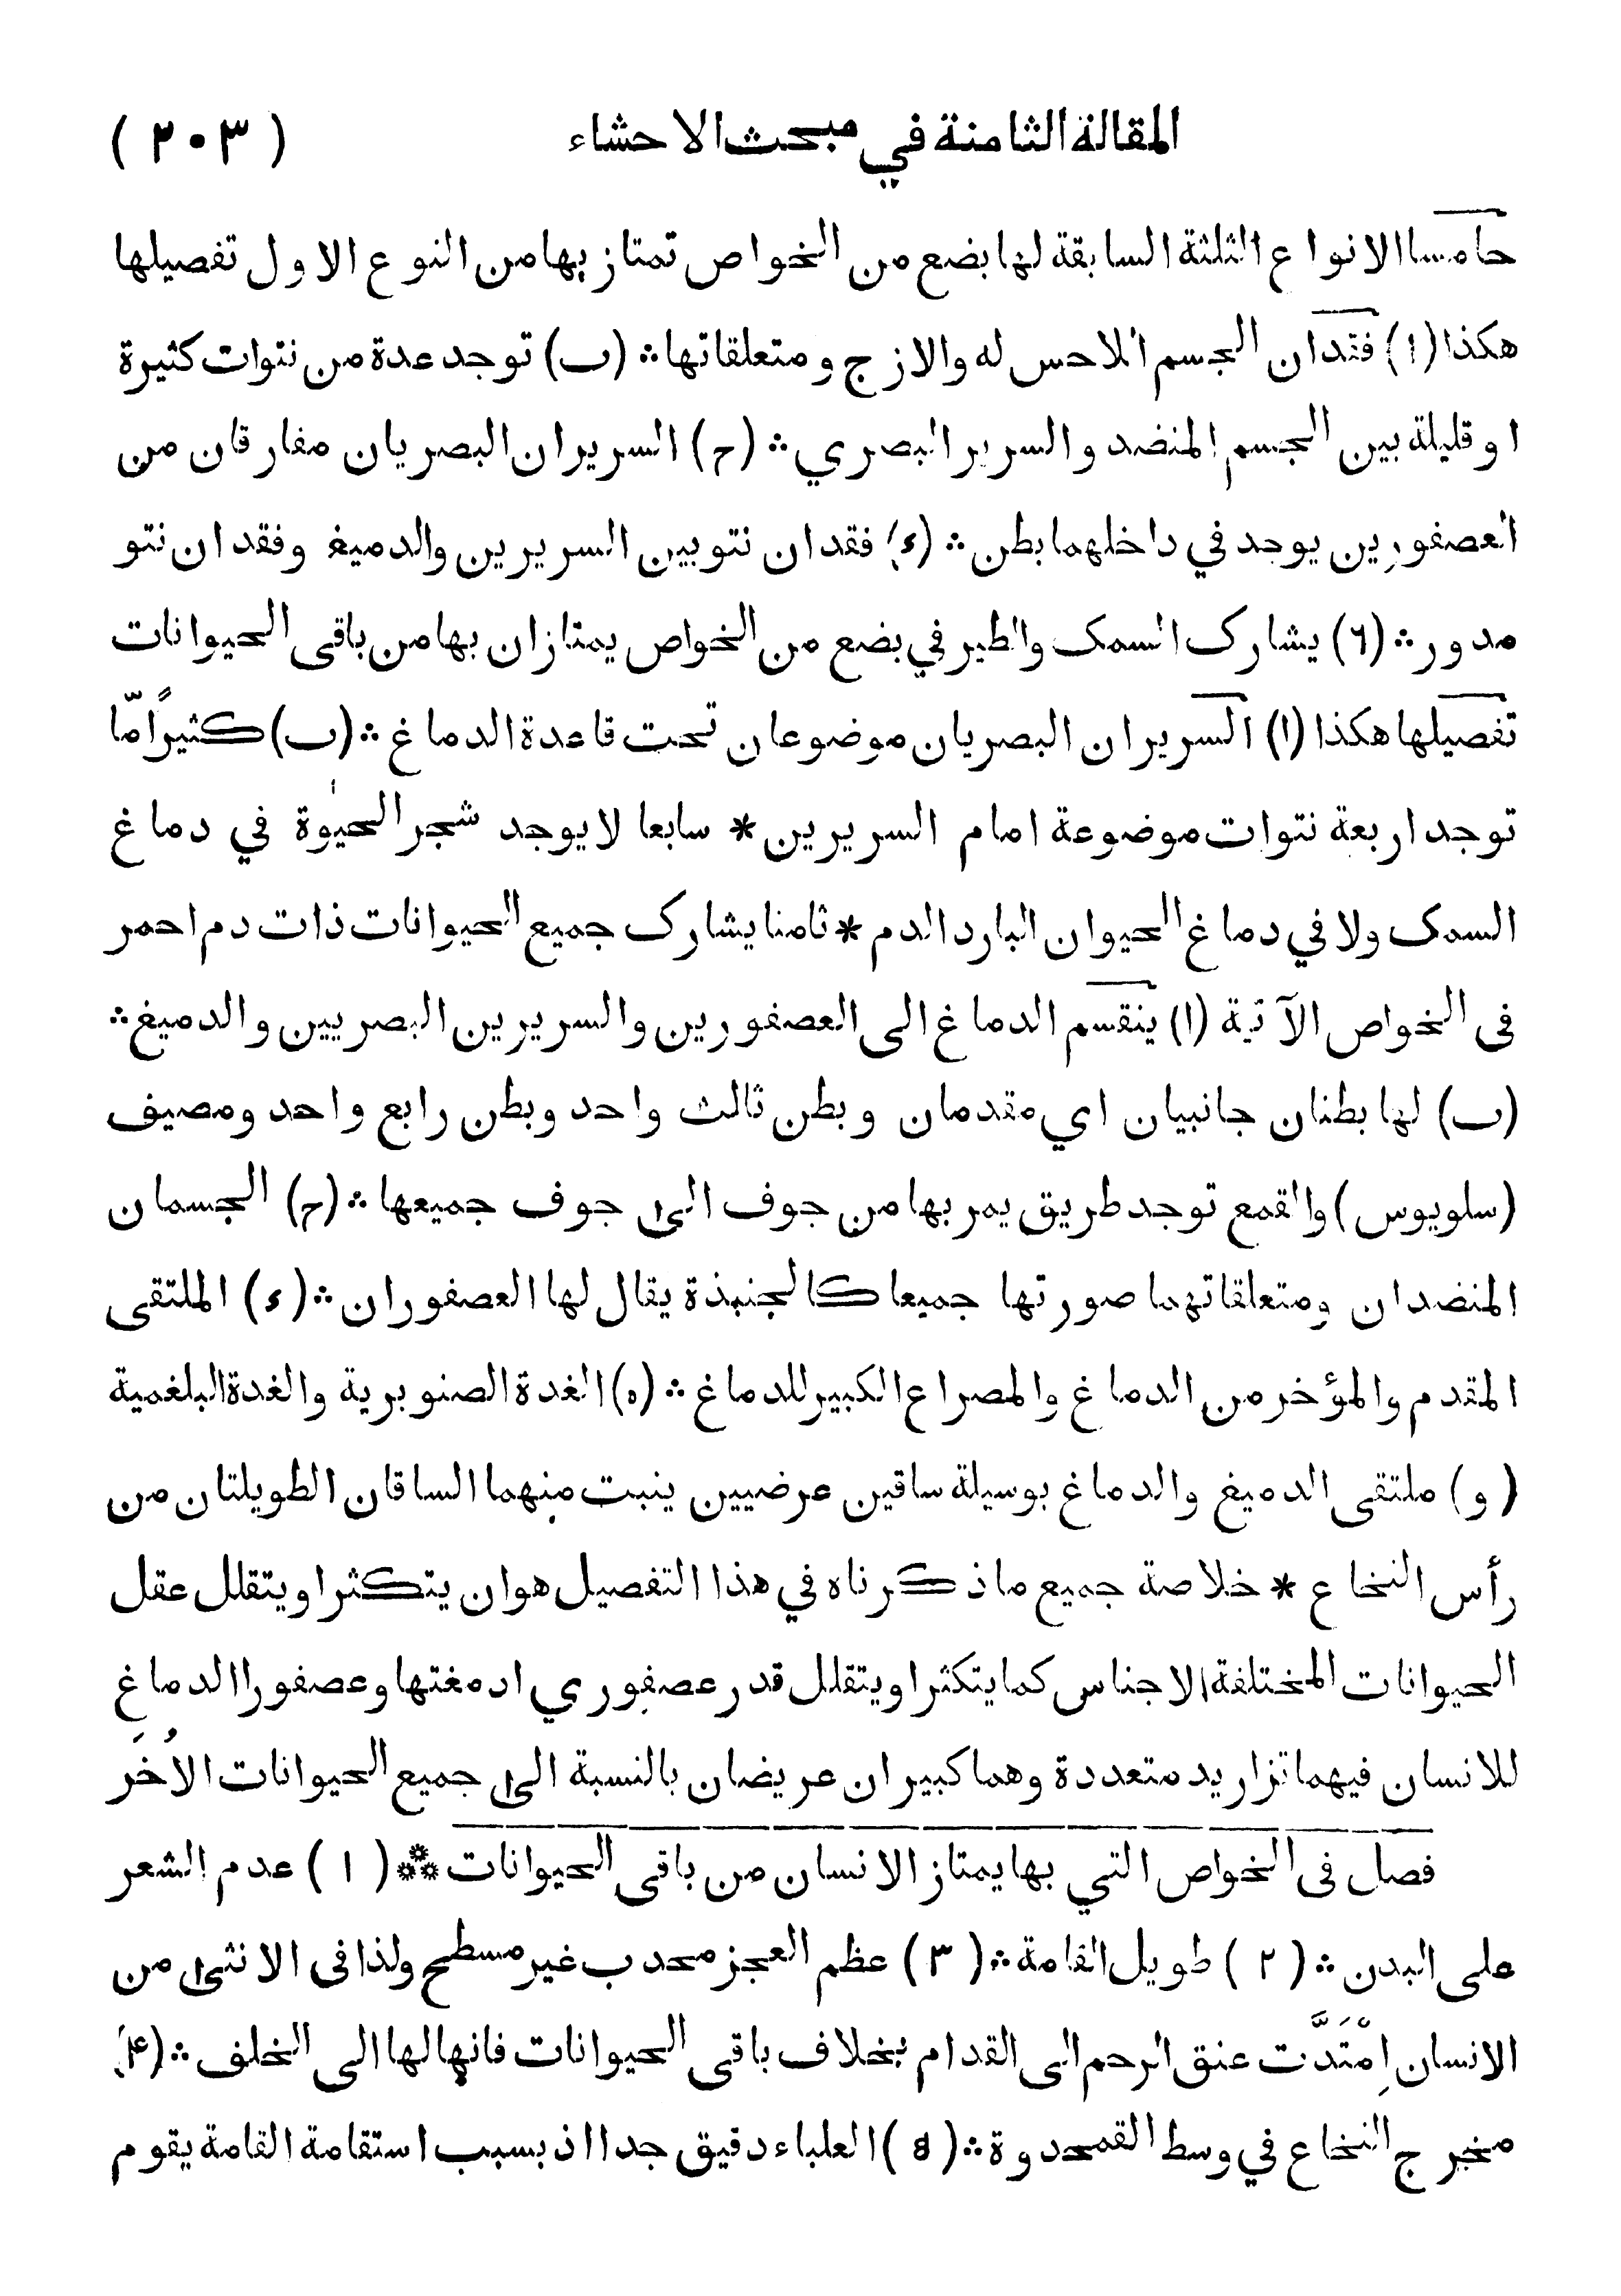 المقالة الثامنة في مبحث الاحشاء (٢٠٣)
خامسا الانواع الثلثة السابقة لها بضع من الخواص تمتاز بها من النوع الاول تفصيلها
هكذا (ا) فقدان الجسم الملاحس له والازج ومتعلقاتها ∴ (ب) توجد عدة من نتوات كثيرة
او قليلة بين الجسم المنضد والسرير البصري ∴ (ح) السريران البصريان مفارقان من
العصفورين يوجد في داخلهما بطن ∴ (ء) فقدان نتو بين السريرين والدميغ وفقدان نتو
مدور ∴ (٦) يشارك السمك والطير في بضع من الخواص يمتازان بها من باقى الحيوانات
تفصيلها هكذا (ا) السريران البصريان موضوعان تحت قاعدة الدماغ ∴ (ب) كثيرًا مّا
توجد اربعة نتوات موضوعة امام السريرين * سابعا لا يوجد شجر الحيٰوة في دماغ
السمك ولا في دماغ الحيوان البارد الدم * ثامنا يشارك جميع الحيوانات ذات دم احمر
فى الخواص الآتية (ا) ينقسم الدماغ الى العصفورين والسريرين البصريين والدميغ ∴
(ب) لها بطنان جانبيان اي مقدمان وبطن ثالث واحد وبطن رابع واحد ومصيف
(سلويوس) والقمع توجد طريق يمر بها من جوف الىٰ جوف جميعها ∴ (ح) الجسمان
المنضدان ومتعلقاتهما صورتها جميعا كالجنبذة يقال لها العصفوران ∴ (ء) الملتقى
المقدم والمؤخر من الدماغ والمصراع الكبير للدماغ ∴ (ه) الغدة الصنوبرية والغدة البلغمية
(و) ملتقى الدميغ والدماغ بوسيلة ساقين عرضيين ينبت منهما الساقان الطويلتان من
رأس النخاع * خلاصة جميع ما ذكرناه في هذا التفصيل هو ان يتكثر او يتقلل عقل
الحيوانات المختلفة الاجناس كما يتكثر او يتقلل قدر عصفوري ادمغتها وعصفورا الدماغ
للانسان فيهما تزاريد متعددة وهما كبيران عريضان بالنسبة الىٰ جميع الحيوانات الاُخَر
فصل فى الخواص التي بها يمتاز الانسان من باقى الحيوانات ⁂ (١) عدم الشعر
على البدن ∴ (٢) طويل القامة ∴ (٣) عظم العجز محدب غير مسطح ولذا فى الانثىٰ من
الانسان اِمْتَدَّت عنق الرحم الى القدام بخلاف باقى الحيوانات فانها لها الى الخلف ∴ (۴)
مخرج النخاع في وسط القمحدوة ∴ (٥) العلباء دقيق جدا اذ بسبب استقامة القامة يقوم